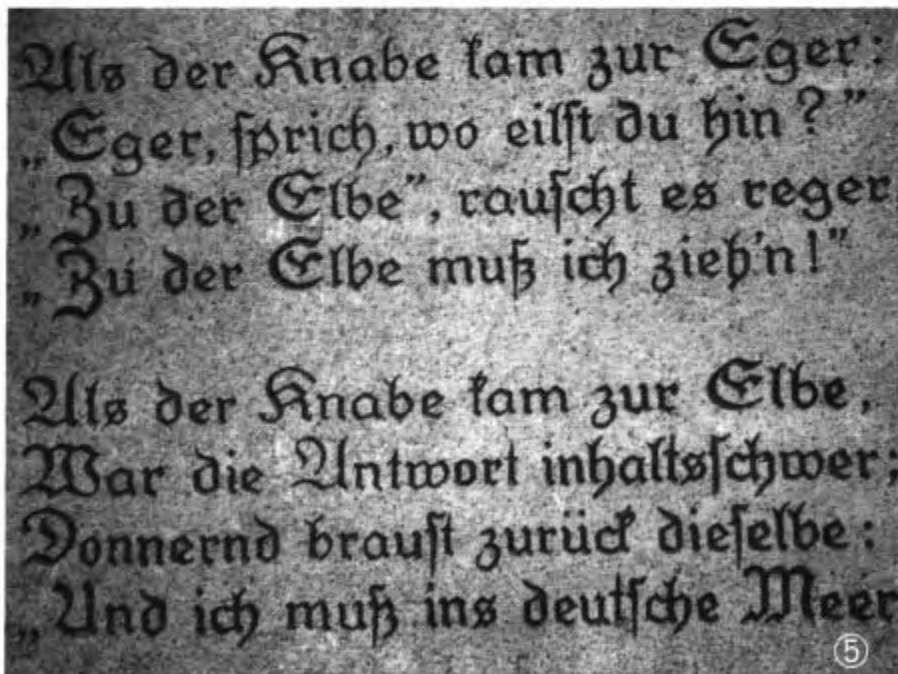 Als der Knabe kam zur Eger:
„Eger, sprich, wo eilst du hin?”
„Zu der Elbe”, rauscht es reger
„Zu der Elbe muß ich zieh'n!”
Als der Knabe kam zur Elbe,
War die Antwort inhaltsschwer;
Donnernd braust zurück dieselbe:
„Und ich muß ins deutsche Meer
⑤